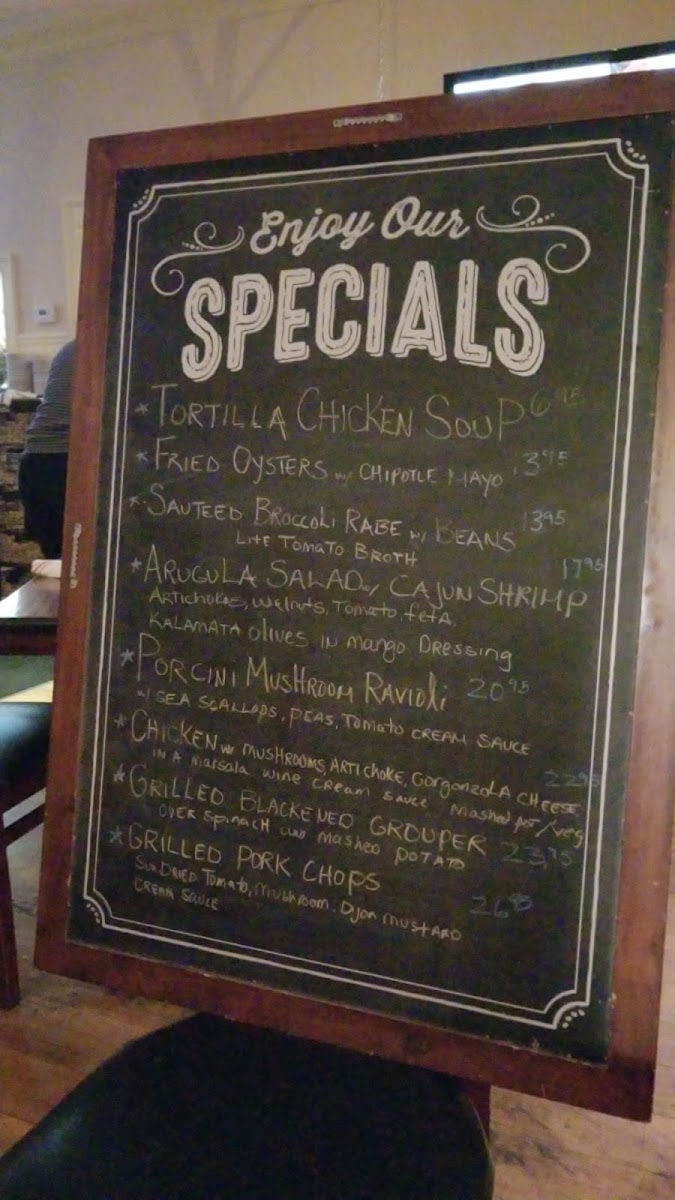 Enjoy Our
SPECIALS
* TORTILLA CHICKEN SOUP
* FRIED OYSTERS w/ CHIPOTLE MAYO 13 95
* SAUTEED BROCCOLI RABE w/ BEANS 13 95
LITE TOMATO BROTH
* ARUGULA SALAD w/ CAJUN SHRIMP 17 95
ARTICHOKES, WALNUTS, TOMATO, FETA,
KALAMATA OLIVES IN MANGO DRESSING
* PORCINI MUSHROOM RAVIOLI 20 95
w/ SEA SCALLOPS, PEAS, TOMATO CREAM SAUCE
* CHICKEN w/ MUSHROOMS, ARTICHOKE, GORGONZOLA CHEESE 22 95
IN A MARSALA WINE CREAM SAUCE MASHED POT/VEG
* GRILLED BLACKENED GROUPER 23.95
OVER SPINACH AND MASHED POTATO
* GRILLED PORK CHOPS 26 95
SUNDRIED TOMATO, MUSHROOM. DIJON MUSTARD
CREAM SAUCE